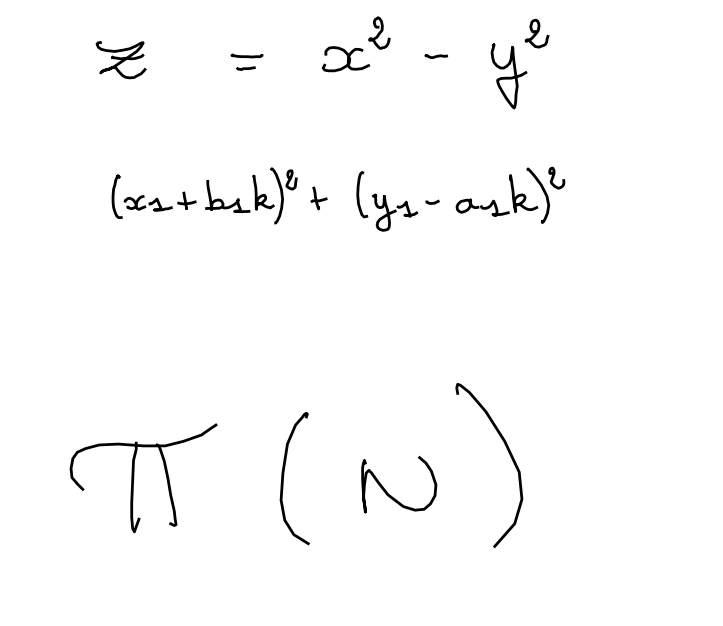 z = x² - y²
(x1+b1k)² + (y1-a1k)²
π(N)